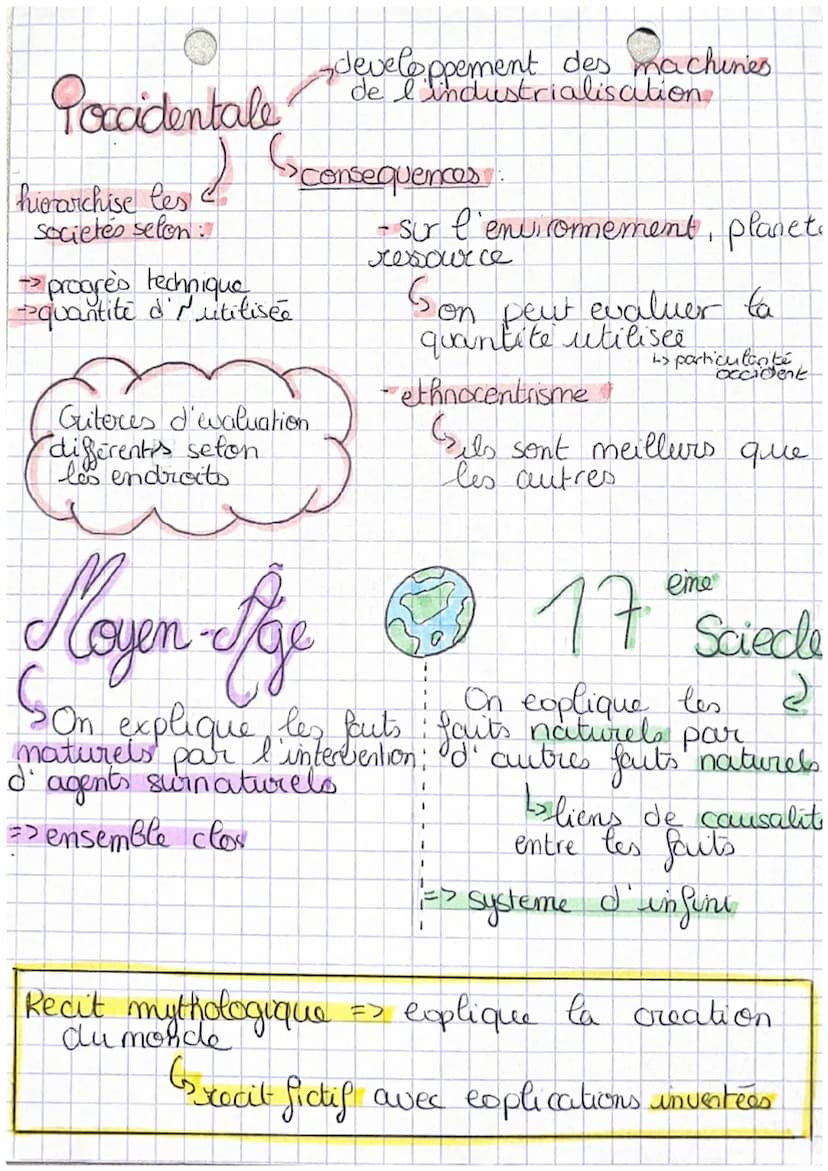 Poccidentale
developpement des machines
de l'industrialisation
consequences :
hierarchise les
societés selon :
-> progrès technique
-> quantité d'N utilisée
- sur l'environnement, planete
ressource
on peut evaluer la
quantité utilisée
↳ particularité
occident
- ethnocentrisme
ils sont meilleurs que
les autres
Criteres d'evaluation
differents selon
les endroits
Moyen-Âge
On explique les faits
naturels par l'intervention
d'agents surnaturels
=> ensemble clos
17 eme
Sciecle
On explique les
faits naturels par
d'autres faits naturels
↳ liens de causalit
entre les faits
=> systeme d'infini
Recit mythologique => explique la creation
du monde
↳ recit fictif avec explications inventées